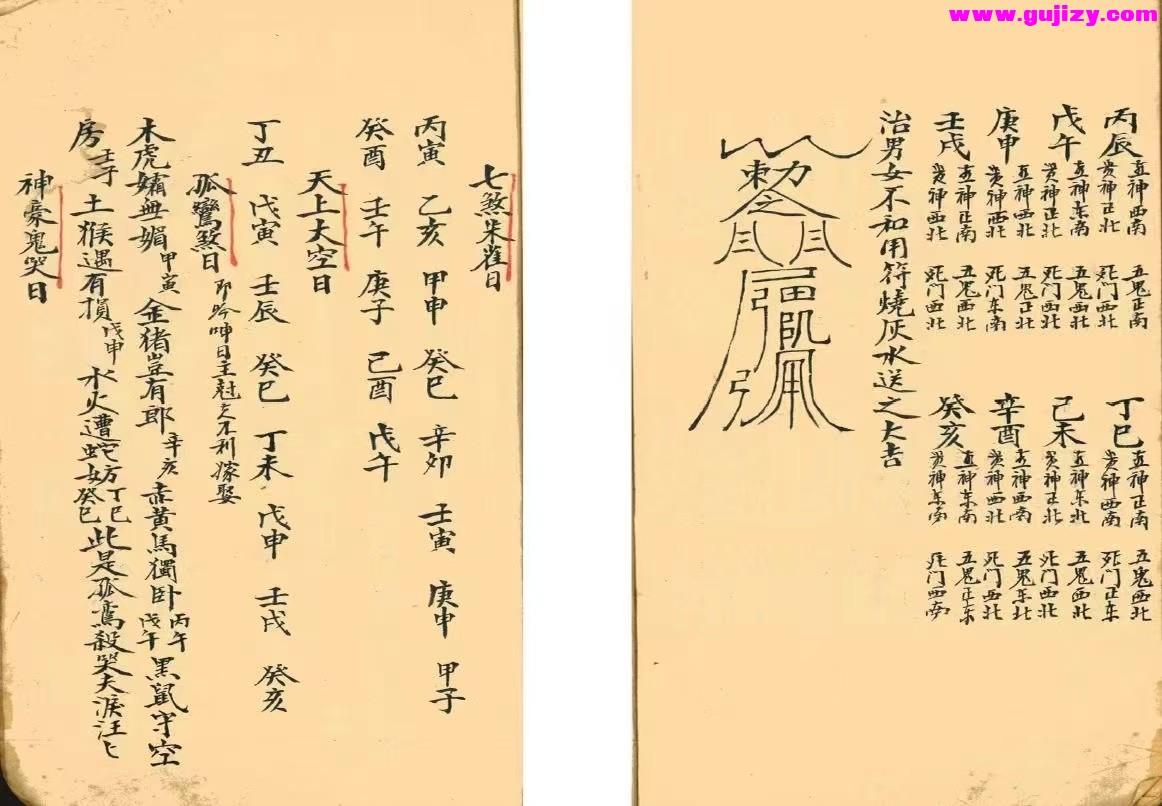 www.gujizy.com
丙辰 喜神西南 貴神正北 五鬼正南 死门西北 丁巳 喜神正南 貴神西南 五鬼西北 死门正东
戊午 喜神东南 貴神正北 五鬼西北 死门西北 己未 喜神东北 貴神正北 五鬼西北 死门西北
庚申 喜神西北 貴神西北 五鬼正北 死门东南 辛酉 喜神西南 貴神西北 五鬼东北 死门西北
壬戌 喜神正南 貴神西北 五鬼西北 死门西北 癸亥 喜神东南 貴神东南 五鬼正东 死门西南
治男女不和用符燒灰水送之大吉
勅
七煞朱雀日
丙寅 乙亥 甲申 癸巳 辛卯 壬寅 庚申 甲子
癸酉 壬午 庚子 己酉 戊午
天上大空日
丁丑 戊寅 壬辰 癸巳 丁未 戊申 壬戌 癸亥
孤鸞煞日 即吟呻日主尅 不利嫁娶
木虎孀無媚 甲寅 金猪豈有郎 辛亥 赤黃馬獨卧 丙午 戊午 黑鼠守空
房 壬子 土猴遇有損 戊申 水火遭蛇妨 丁巳 癸巳 此是孤鸞殺哭夫淚汪匕
神豪鬼哭日